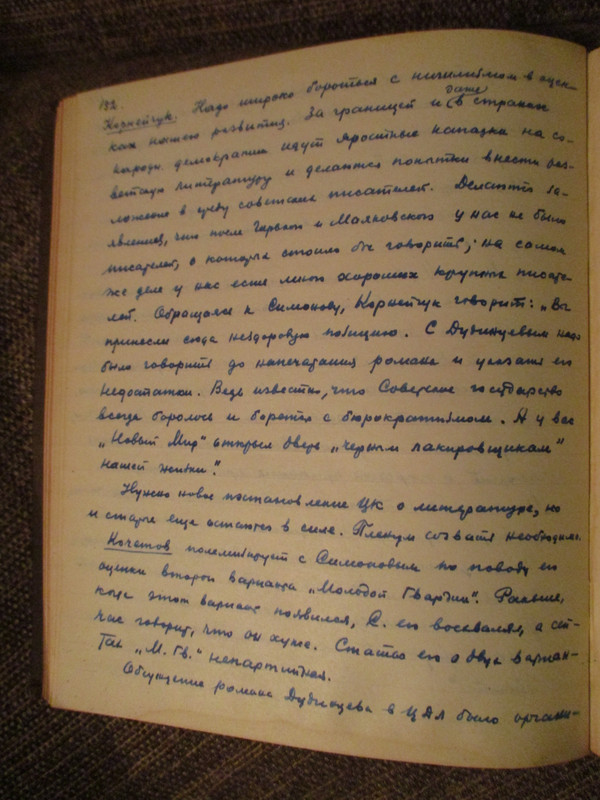 132.
Корнейчук. Надо широко бороться с нигилизмом в оцен-
ках нашего развития. За границей и (даже в странах
народн. демократии идут яростные нападки на со-
ветскую литературу и делаются попытки внести раз-
ложение в среду советских писателей. Делаются за-
явления, что после Горького и Маяковского у нас не было
писателей, о которых стоило бы говорить; на самом
же деле у нас есть много хороших крупных писате-
лей. Обращаясь к Симонову, Корнейчук говорит: „Вы
принесли сюда нездоровую позицию. С Дудинцевым надо
было говорить до напечатания романа и указать его
недостатки. Ведь известно, что Советское государство
всегда боролось и борется с бюрократизмом. А у вас
„Новый Мир" открыл дверь „черным лакировщикам"
нашей жизни".
Нужно новое постановление ЦК о литературе, но
и старые еще остаются в силе. Пленум созвать необходимо.
Кочетов полемизирует с Симоновым по поводу его
оценки второго варианта „Молодой Гвардии". Раньше,
когда этот вариант появился, С. его восхвалял, а сей-
час говорит, что он хуже. Статья его о двух вариан-
тах „М. Гв." непартийная.
Обсуждение романа Дудинцева в ЦДЛ было органи-